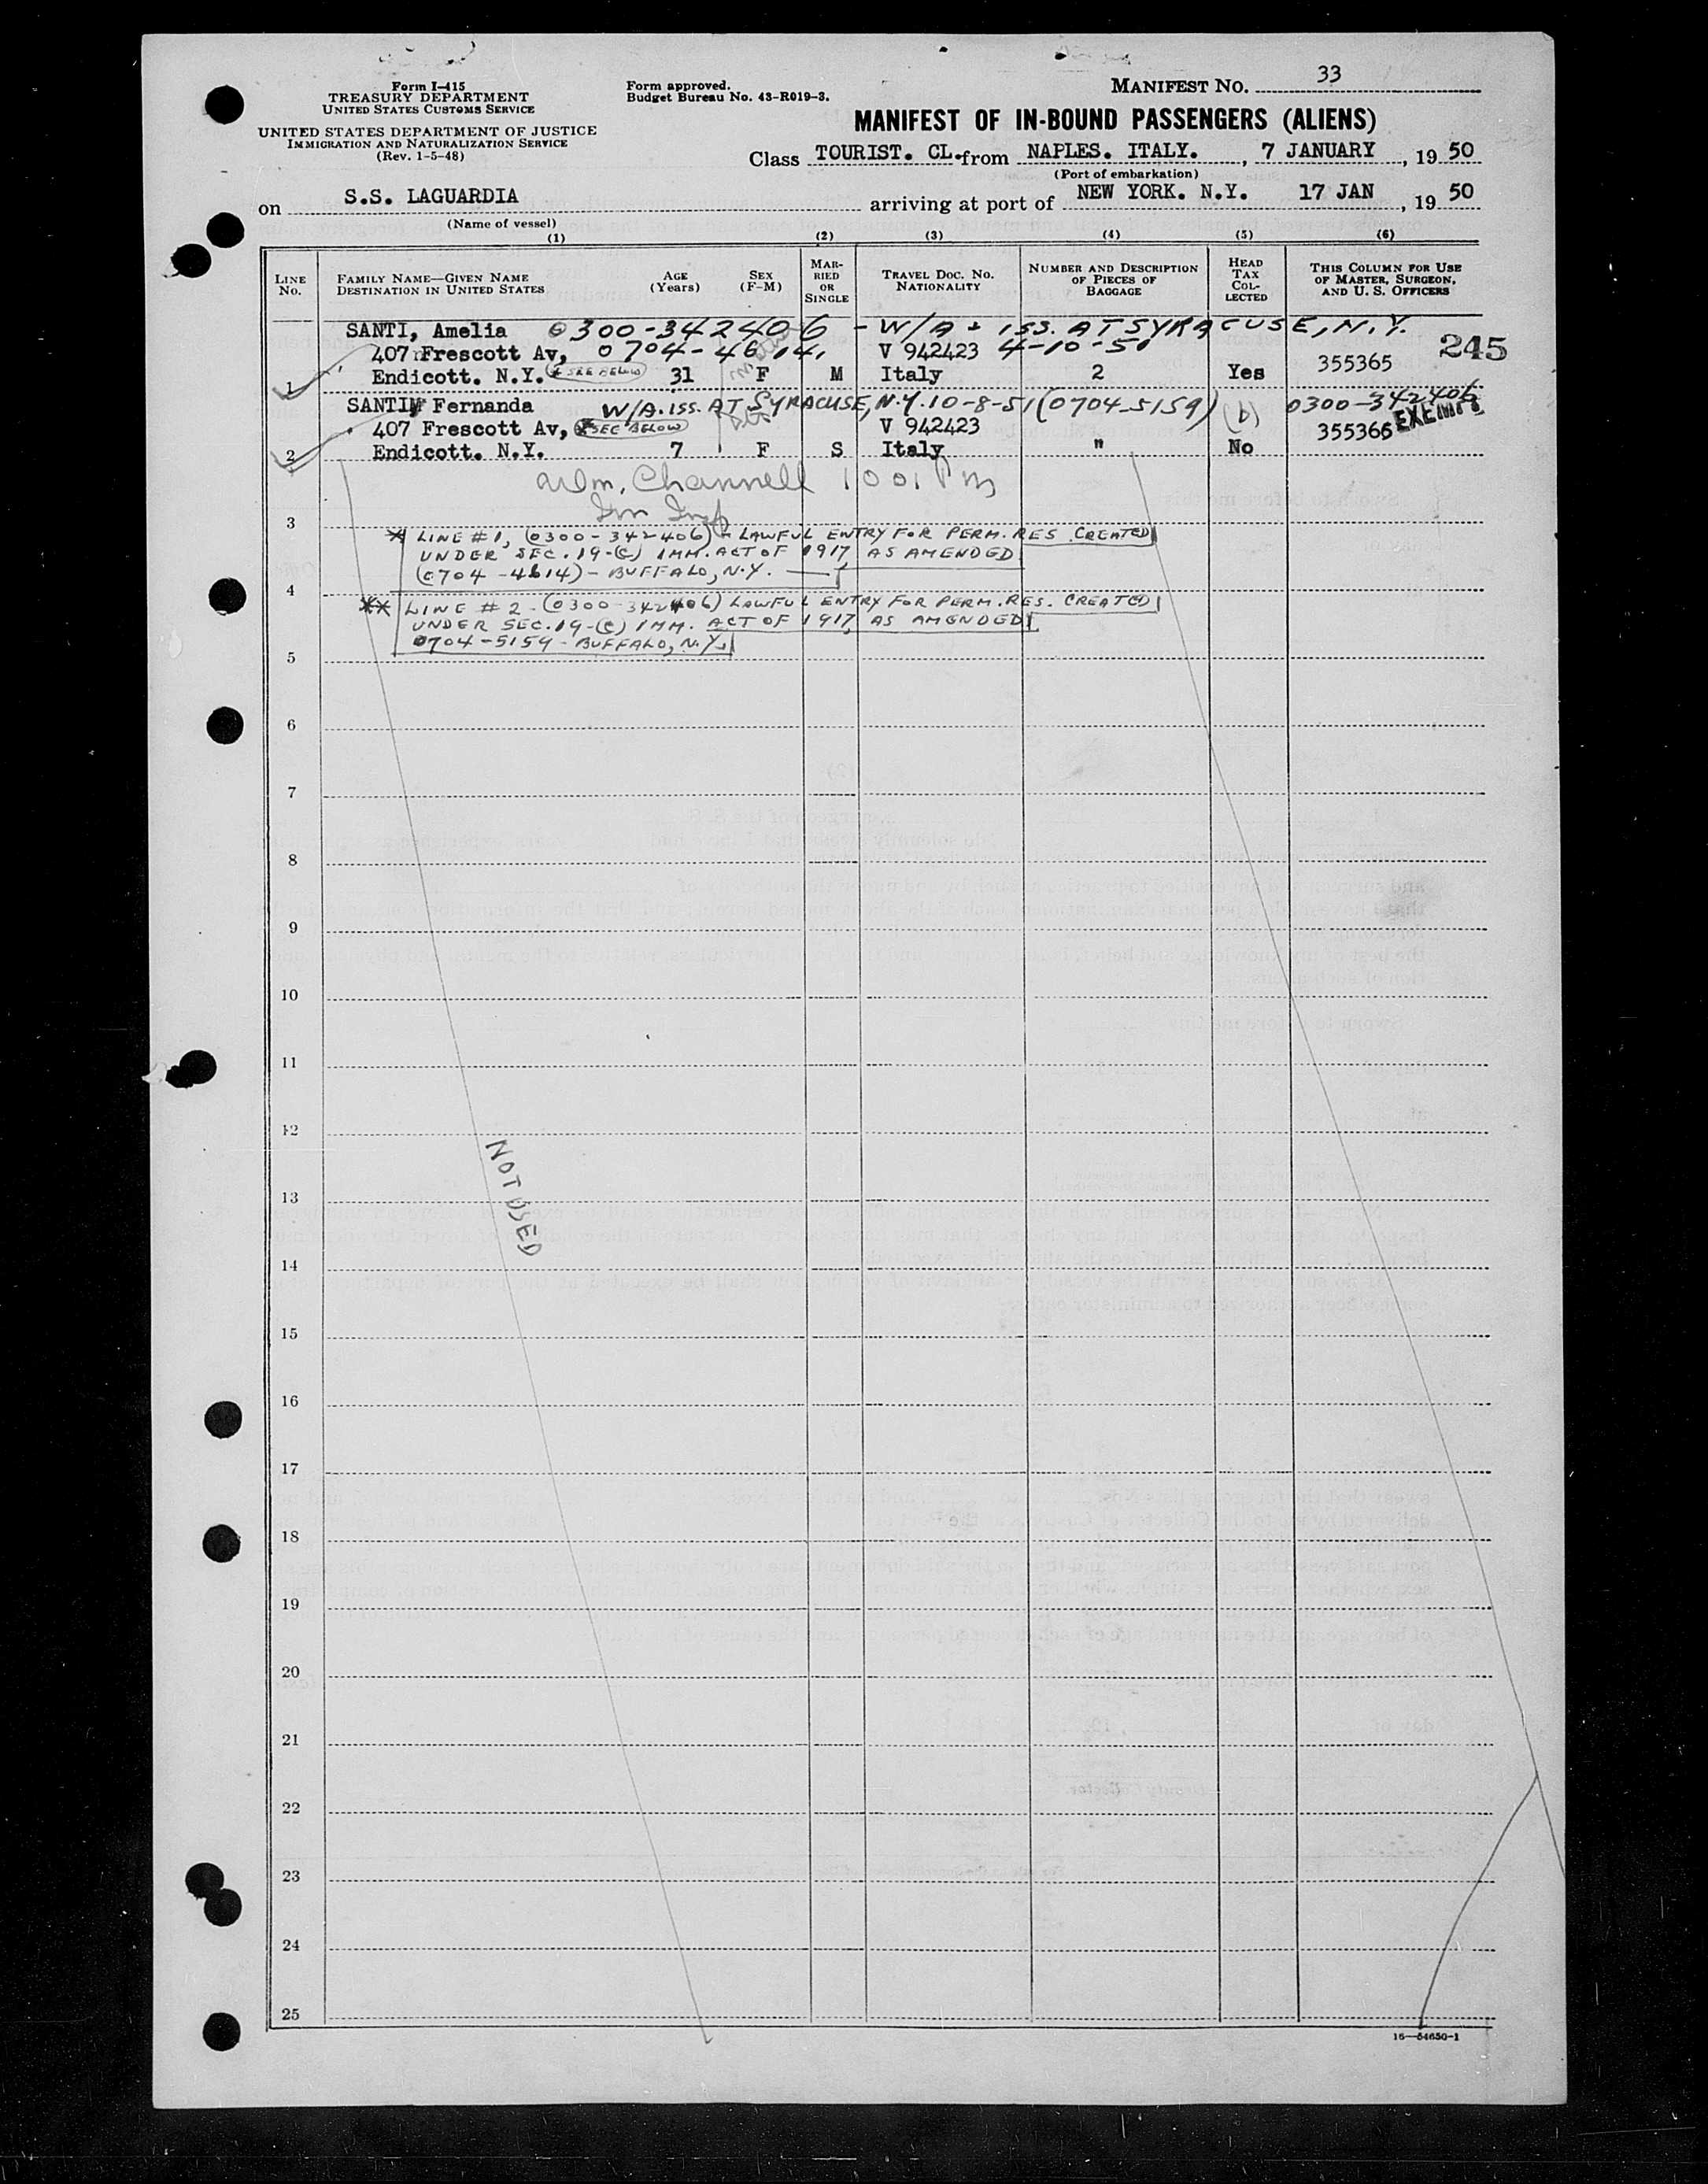 Form I-415
TREASURY DEPARTMENT
UNITED STATES CUSTOMS SERVICE
UNITED STATES DEPARTMENT OF JUSTICE
IMMIGRATION AND NATURALIZATION SERVICE
(Rev. 1-5-48)
Form approved.
Budget Bureau No. 43-R019-3.
MANIFEST NO. 33
MANIFEST OF IN-BOUND PASSENGERS (ALIENS)
Class TOURIST. CL. from NAPLES. ITALY. , 7 JANUARY , 19 50
(Port of embarkation)
on S.S. LAGUARDIA arriving at port of NEW YORK. N.Y. 17 JAN , 19 50
(Name of vessel)
(1) (2) (3) (4) (5) (6)
LINE No. FAMILY NAME—GIVEN NAME DESTINATION IN UNITED STATES AGE (Years) SEX (F-M) MARRIED OR SINGLE TRAVEL DOC. NO. NATIONALITY NUMBER AND DESCRIPTION OF PIECES OF BAGGAGE HEAD TAX COLLECTED THIS COLUMN FOR USE OF MASTER, SURGEON, AND U. S. OFFICERS
SANTI, Amelia 0300-342406 - W/A + ISS. AT SYRACUSE, N.Y.
407 Frescott Av, 0704-4614. V 942423 4-10-51 355365 245
1 Endicott. N.Y. (* SEE BELOW) 31 F M Italy 2 Yes
SANTI, Fernanda W/A. ISS. AT SYRACUSE, N.Y. 10-8-51 (0704-5159) (b) 0300-342406
407 Frescott Av, (* SEE BELOW) V 942423 355366 EXEMPT
2 Endicott. N.Y. 7 F S Italy " No
Wm. Channell 1001 Pm
Imm Insp
3
* LINE #1, (0300-342406) - LAWFUL ENTRY FOR PERM. RES. CREATED
UNDER SEC. 19-(C) IMM. ACT OF 1917, AS AMENDED.
(0704-4614) - BUFFALO, N.Y.
4
** LINE #2 - (0300-342406) LAWFUL ENTRY FOR PERM. RES. CREATED
UNDER SEC. 19-(C) IMM. ACT OF 1917, AS AMENDED
0704-5159 - BUFFALO, N.Y.
5
6
7
8
9
10
11
12
NOT USED
13
14
15
16
17
18
19
20
21
22
23
24
25
16—54650-1